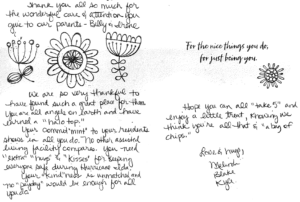 Thank you all so much for
the wonderful care & attention you
give to our parents - Billy & Irene
We are so very thankful to
have found such a great place for them
You are all angels on earth and have
earned a "halo top."
Your commitment to your residents
shows in all you do. No other assisted
living facility compares. You need
"extra" "hugs" & "kisses" for keeping
everyone safe during Hurricane
Your "kind"ness is unmatched and
"no" "payday" would be enough for all
you do.
For the nice things you do,
for just being you.
Hope you can all "take 5" and
enjoy a little treat, knowing we
think you're all that & "a bag of
chips."
Love & hugs,
Blake
Kyle